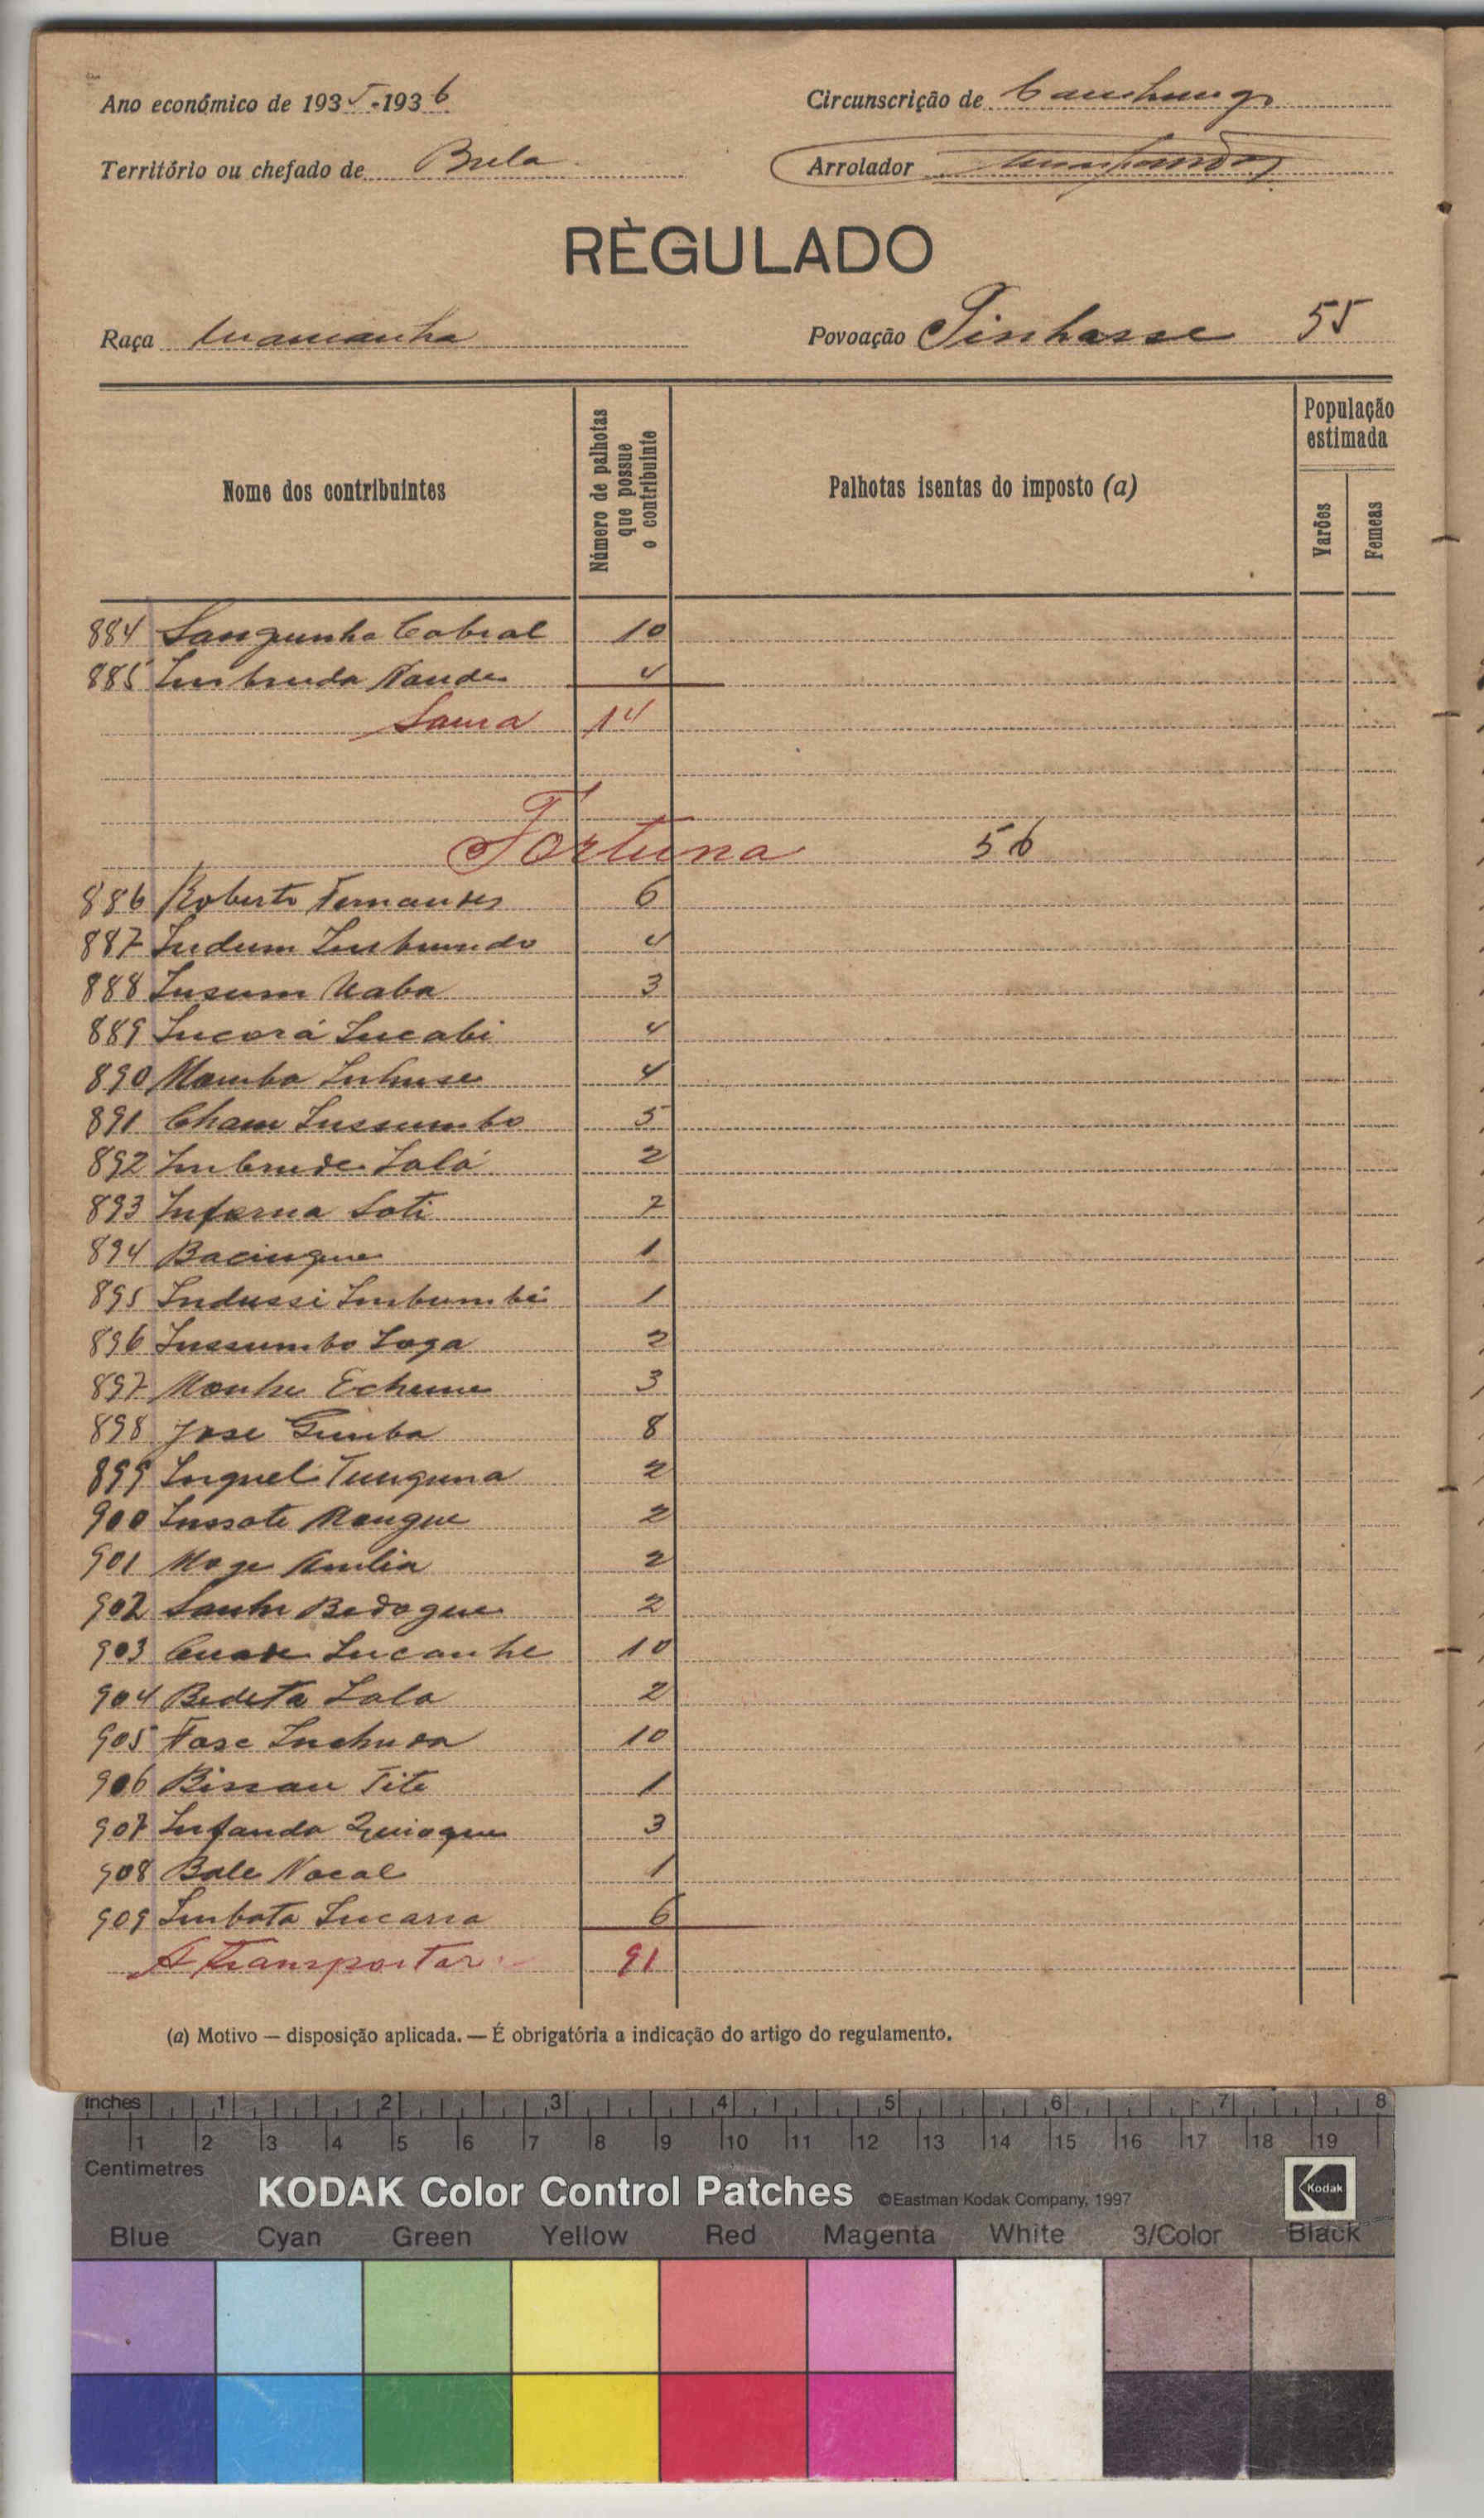 Ano económico de 1935-1936
Circunscrição de
Território ou chefado de Bula
Arrolador
RÈGULADO
Raça
Povoação Tinhasse 55
Nome dos contribuintes
Número de palhotas que possue o contribuinte
Palhotas isentas do imposto (a)
População estimada
Varões
Femeas
884 Sangunho Cabral 10
885 4
Soma 14
Fortuna 56
886 Roberto Fernandes 6
887 Indum 4
888 Insum Uaba 3
889 Incorá Incabi 4
890 Mambo 4
891 Cham Inssumbo 5
892 Imbunde Lalá 2
893 Inferna Soti 7
894 Bacingue 1
895 Indussi Imbumbé 1
896 Inssumbo Loga 2
897 3
898 Jose Gumba 8
899 Inquel Tunguna 2
900 Inssote 2
901 2
902 2
903 Incanhe 10
904 Bedeta Lala 2
905 10
906 Bissau Tite 1
907 Infanda Quioque 3
908 Bale Nacal 1
909 Imbota Incassa 6
A transportar 91
(a) Motivo — disposição aplicada. — É obrigatória a indicação do artigo do regulamento.
inches 1 2 3 4 5 6 7 8
1 2 3 4 5 6 7 8 9 10 11 12 13 14 15 16 17 18 19
Centimetres
KODAK Color Control Patches ©Eastman Kodak Company, 1997 Kodak
Blue Cyan Green Yellow Red Magenta White 3/Color Black